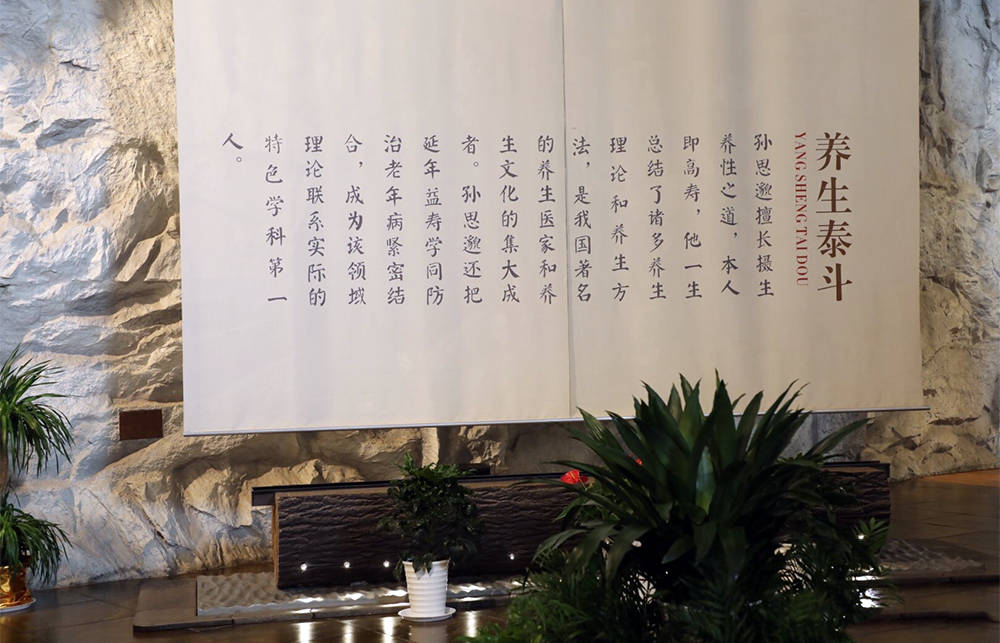 养生泰斗
YANG SHENG TAI DOU
孙思邈擅长摄生
养性之道，本人
即高寿，他一生
总结了诸多养生
理论和养生方
法，是我国著名
的养生医家和养
生文化的集大成
者。孙思邈还把
延年益寿学同防
治老年病紧密结
合，成为该领域
理论联系实际的
特色学科第一
人。